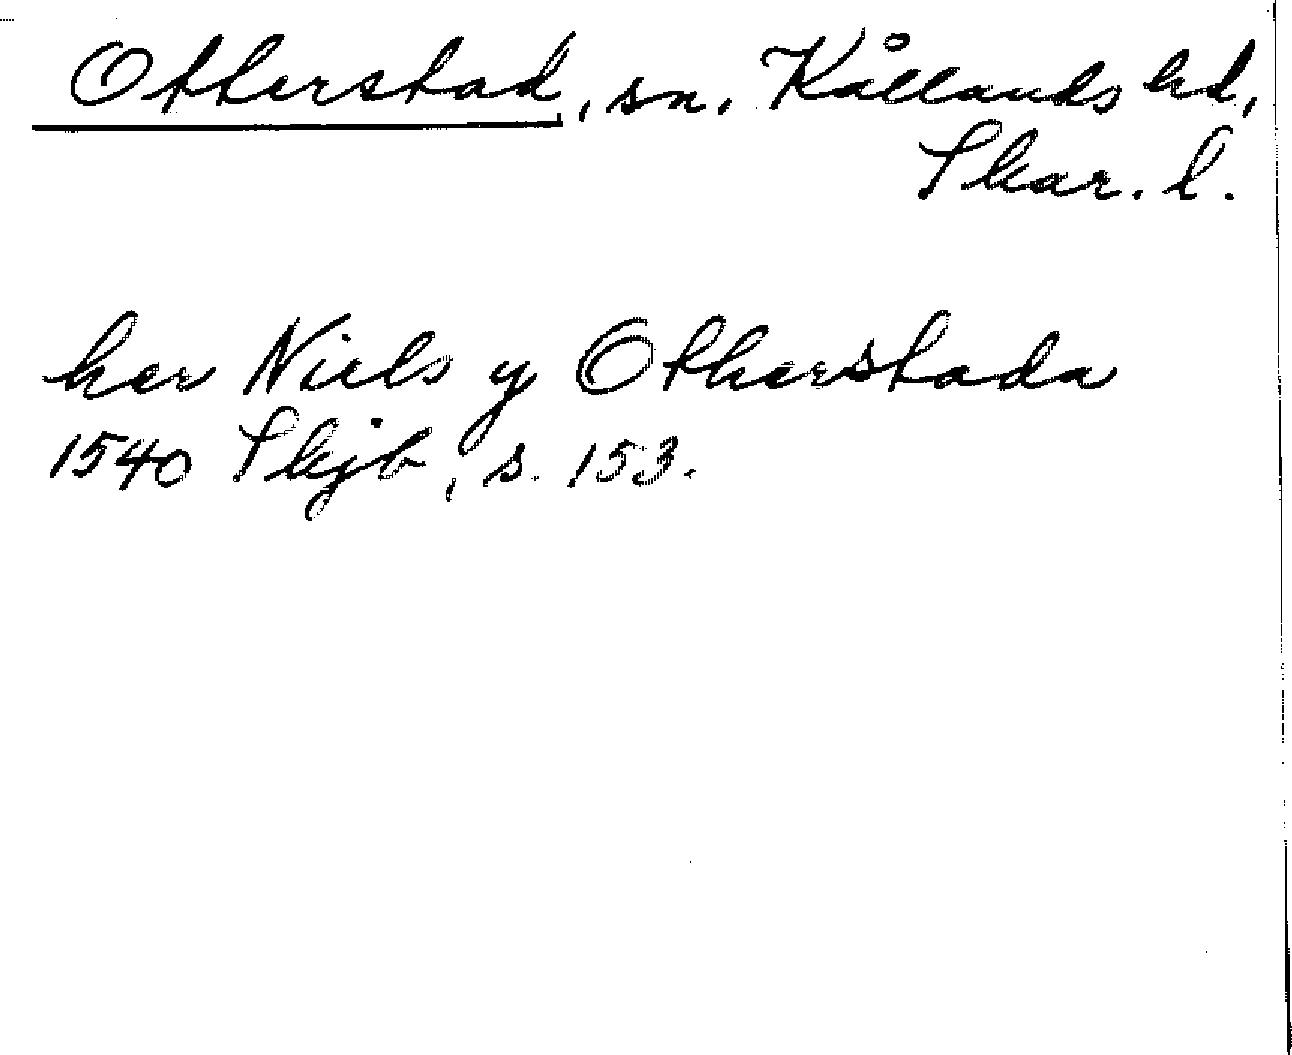 Otterstad, sn. Kållands hd,
Skar. l.
her Niels y Otherstada
1540 Skjb, s. 153.